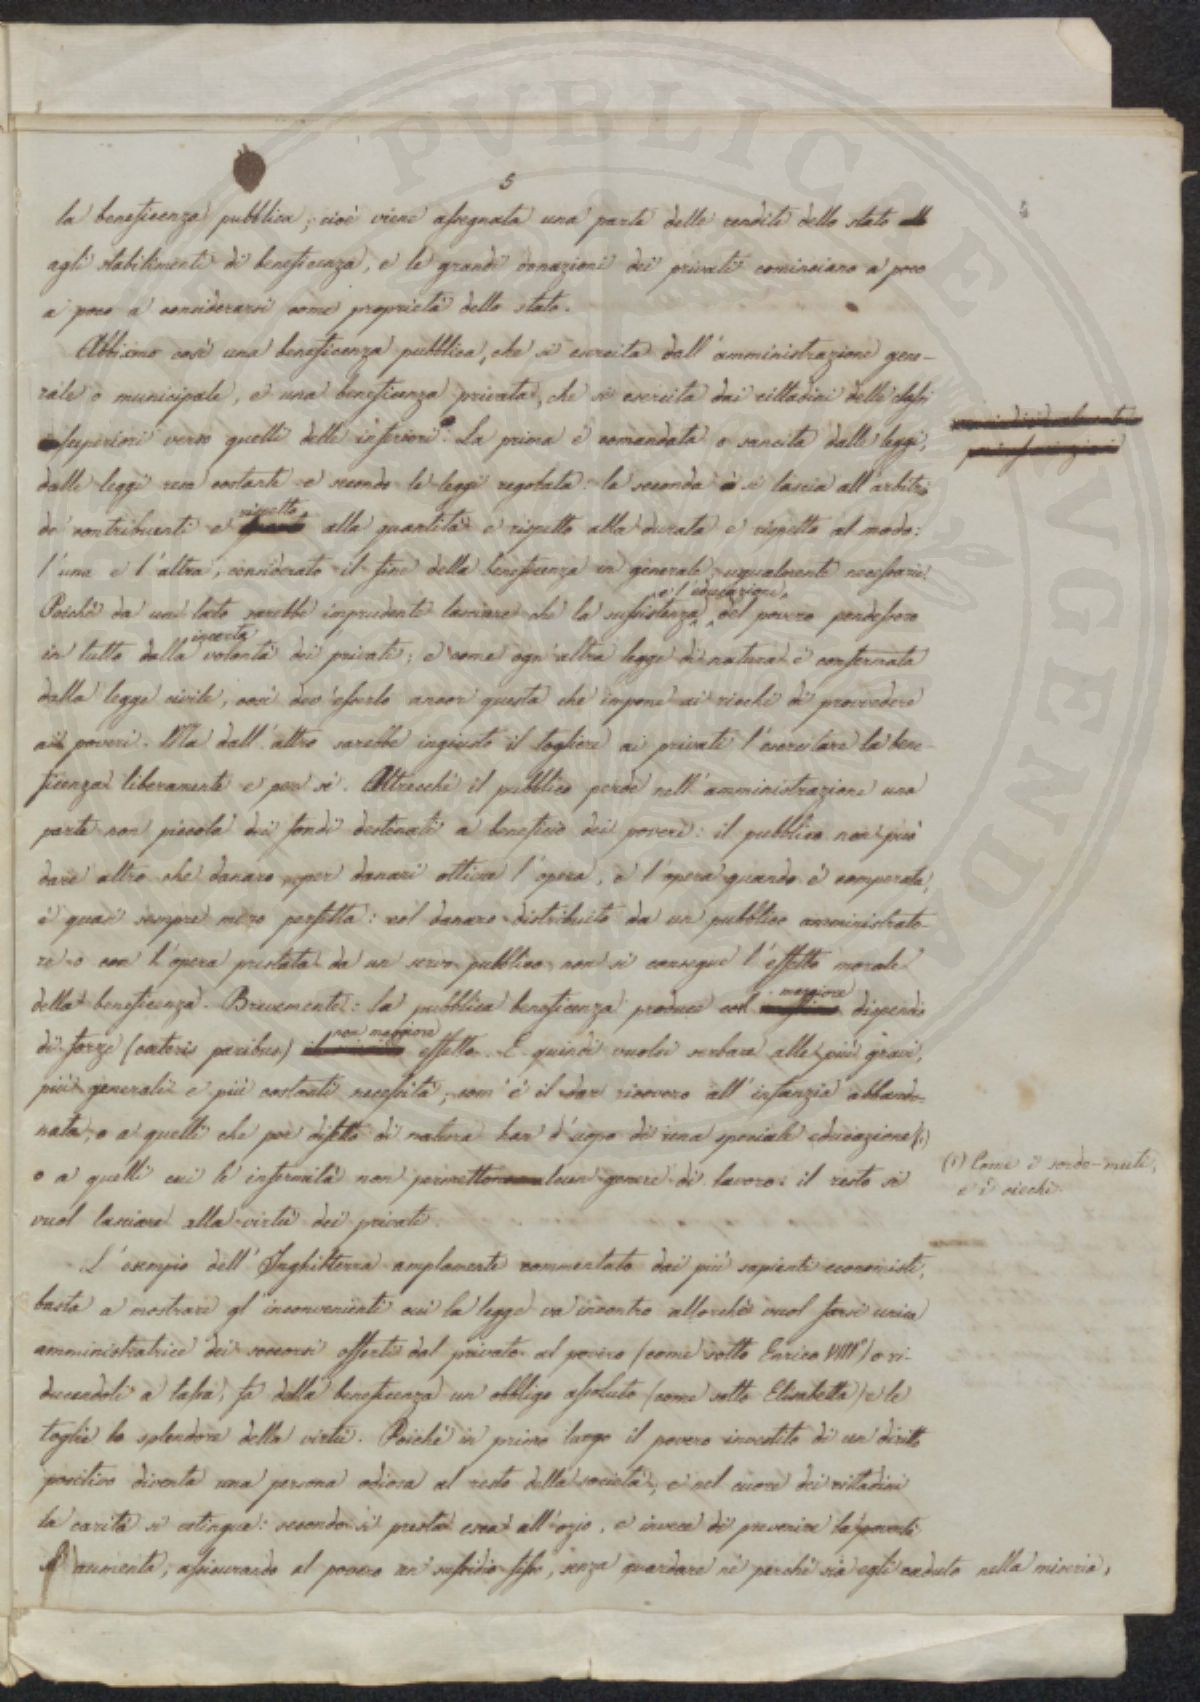 5
la beneficenza pubblica; cioè viene assegnata una parte delle rendite dello stato
agli stabilimenti di beneficenza, e le grandi donazioni dei privati cominciano a poco
a poco a considerarsi come proprietà dello stato.
Abbiamo così una beneficenza pubblica, che si esercita dall'amministrazione gene-
rale o municipale, e una beneficenza privata, che si esercita dai cittadini delle classi
superiori verso quelli delle inferiori. La prima è comandata o sancita dalle leggi,
dalle leggi resa costante e secondo le leggi regolata: la seconda si lascia all'arbitrio
de' contribuenti e rispetto alla quantità e rispetto alla durata e rispetto al modo:
l'una e l'altra, considerato il fine della beneficenza in generale, ugualmente necessarie.
Poichè da un lato sarebbe imprudente lasciare che la sussistenza e l'educazione, del povero pendessero
in tutto dalla incerta volontà dei privati; e come ogn'altra legge di natura è confermata
dalla legge civile, così dev'esserlo ancor questa che impone ai ricchi di provvedere
ai poveri. Ma dall'altro sarebbe ingiusto il togliere ai privati l'esercitare la bene-
ficenza liberamente e per sè. Altrecchè il pubblico perde nell'amministrazione una
parte non piccola dei fondi destinati a beneficio dei poveri: il pubblico non può
dare altro che danaro, per danari ottiene l'opera, e l'opera quando è comperata,
è quasi sempre meno perfetta: col danaro distribuito da un pubblico amministrato-
re o con l'opera prestata da un servo pubblico non si consegue l'effetto morale
della beneficenza. Brevemente: la pubblica beneficenza produce col maggiore dispendio
di forze (cæteris paribus) non maggiore effetto. E quindi vuolsi serbare alle più gravi,
più generali e più costanti necessità, com'è il dar ricovero all'infanzia abbando-
nata, o a quelli che per difetto di natura han d'uopo di una speciale educazione (1)
o a quelli cui le infermità non permettono alcun genere di lavoro: il resto si
vuol lasciare alla virtù dei privati.
(1) Come i sordo-muti,
e i ciechi.
L'esempio dell'Inghilterra amplamente commentato dai più sapienti economisti,
basta a mostrare gl'inconvenienti cui la legge va incontro allorchè vuol farsi unica
amministratrice dei soccorsi offerti dal privato al povero (come sotto Enrico VIII°) o ri-
ducendoli a tassa, fa della beneficenza un obbligo assoluto (come sotto Elisabetta) e le
toglie lo splendore della virtù. Poichè in primo luogo il povero investito di un diritto
positivo diventa una persona odiosa al resto della società, e nel cuore dei cittadini
la carità si estingue: secondo si presta esca all'ozio, e invece di prevenire la povertà
si aumenta, assicurando al povero un sussidio fisso, senza guardare nè perchè sia egli caduto nella miseria,